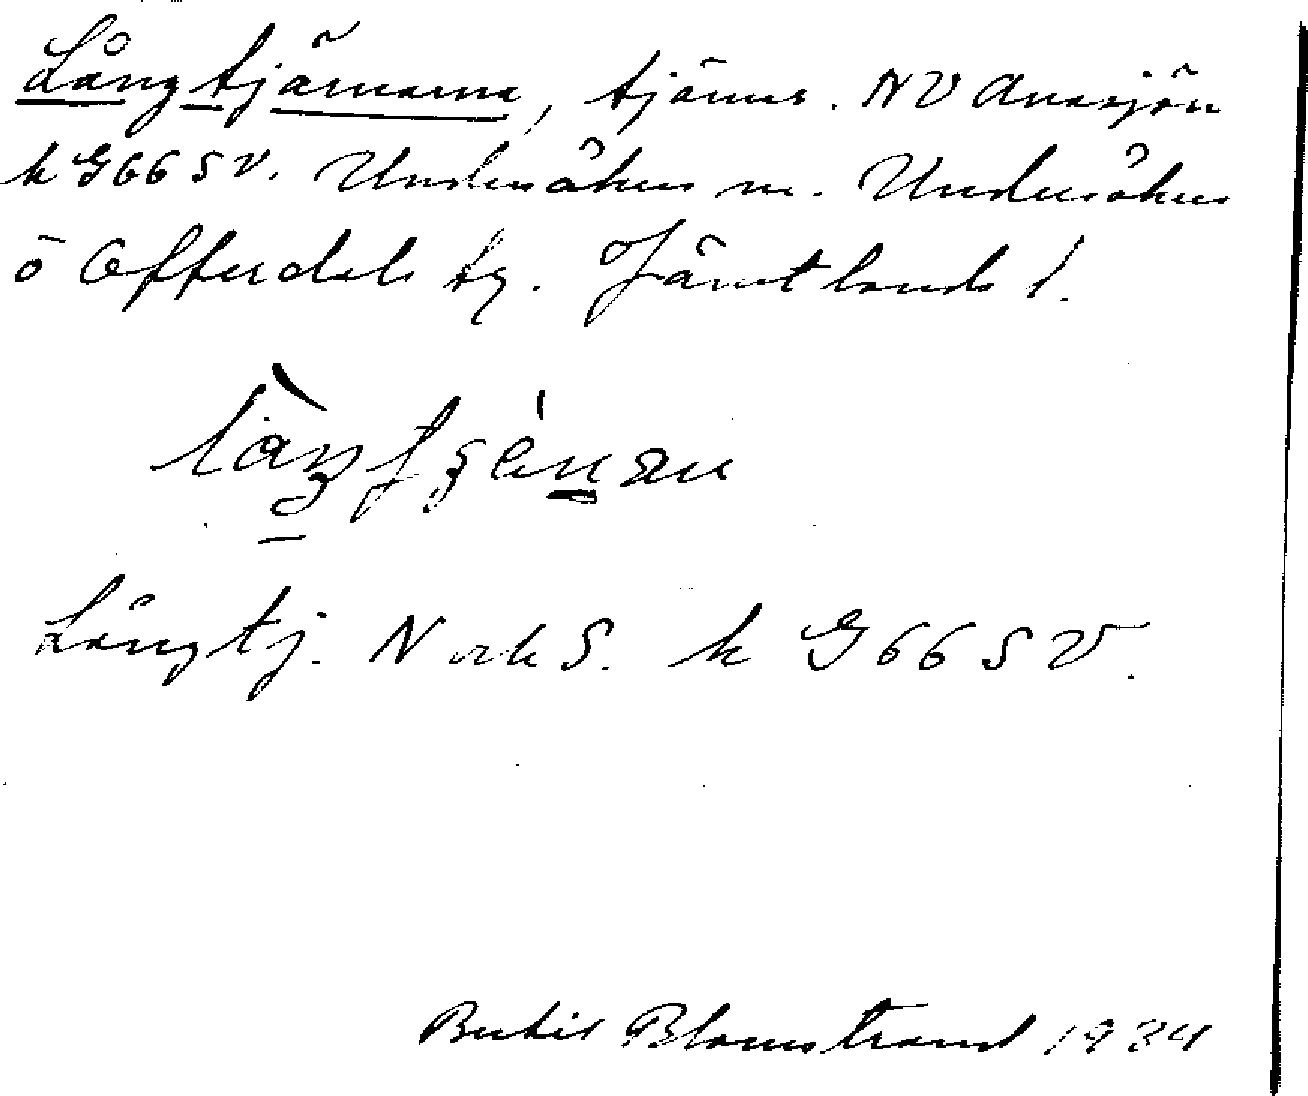 Långtjärnarna, tjärnar. NV Ånnsjön
k G66SV. Undersåkers sn. Undersåkers
o Offerdals tg. Jämtlands l.
Långtj. N och S. k G66SV.
Bertil Blomstrand 1934